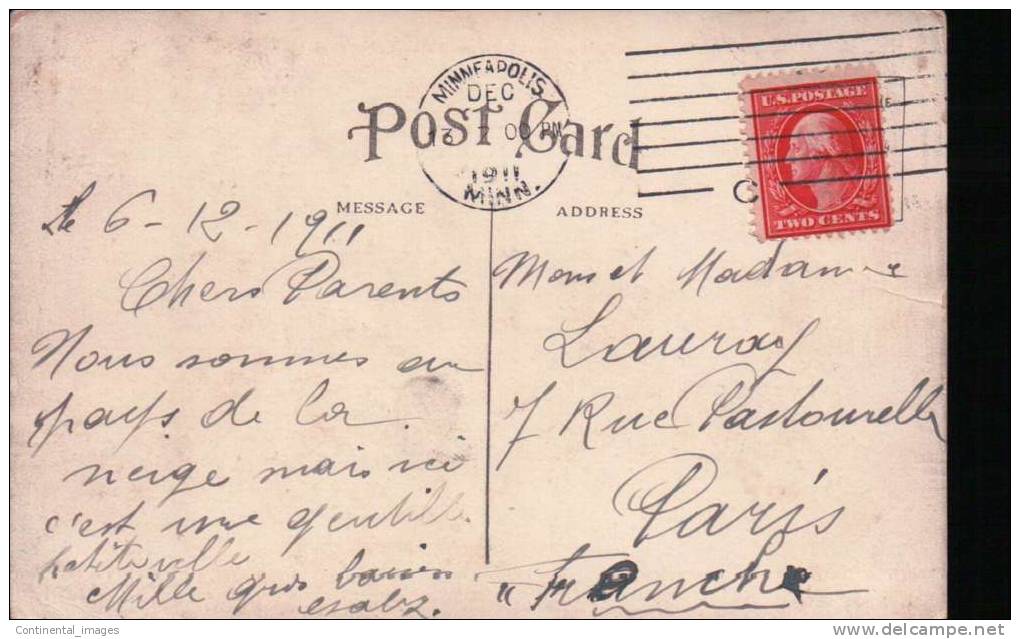 MINNEAPOLIS.
DEC
Post Card
1911
MINN.
MESSAGE
ADDRESS
U.S. POSTAGE
TWO CENTS
le 6-12-1911
Chers Parents
Nous sommes au
pays de la
neige mais ici
c'est une gentille
petite ville
Mille gros
Mons et Madame
Lauray
7 Rue Pastourelle
Paris
Continental_images
www.delcampe.net